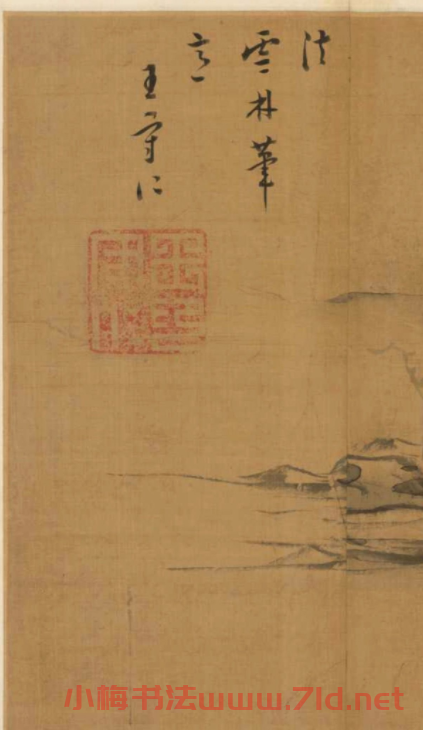 法
雲林筆
意
王守仁
小梅书法www.7ld.net